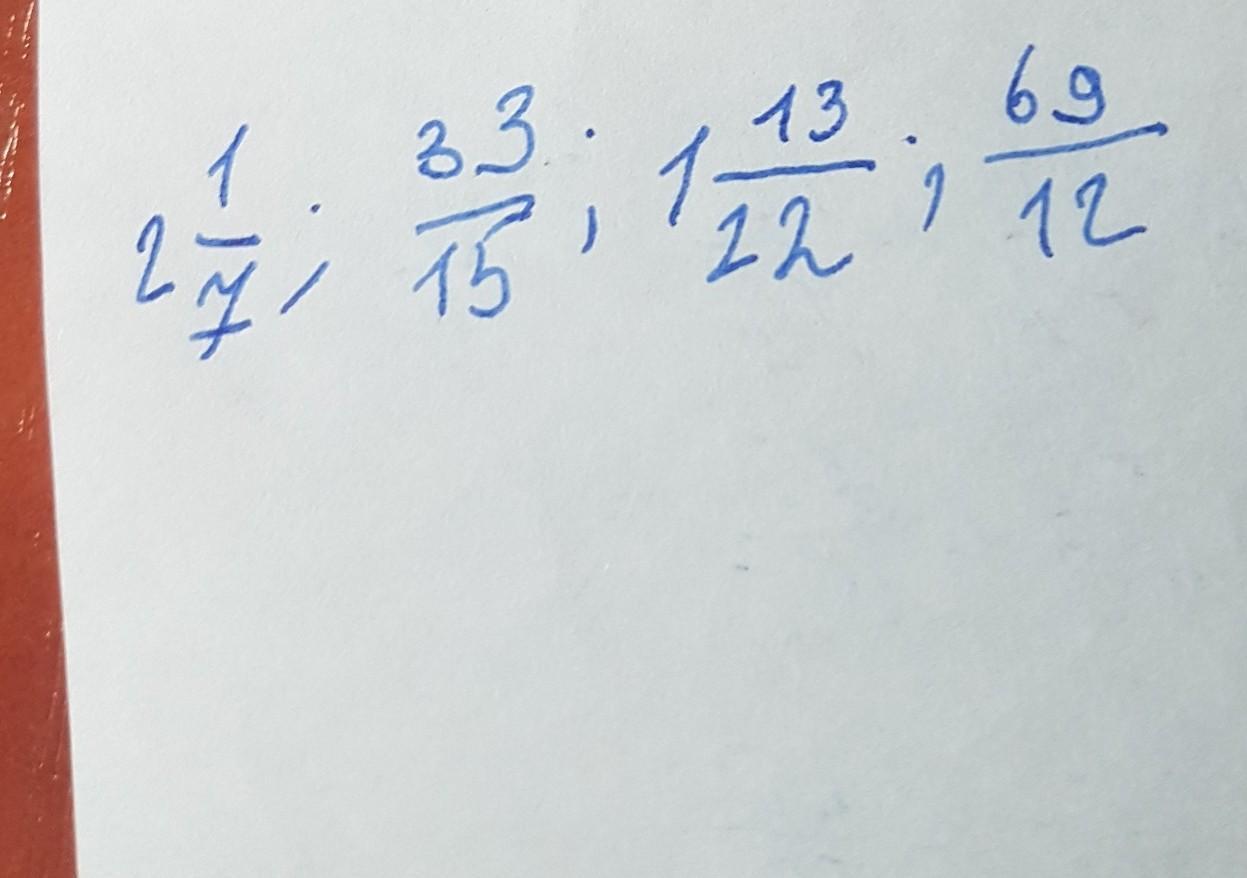 2 1/7; 33/15; 1 13/22; 69/12